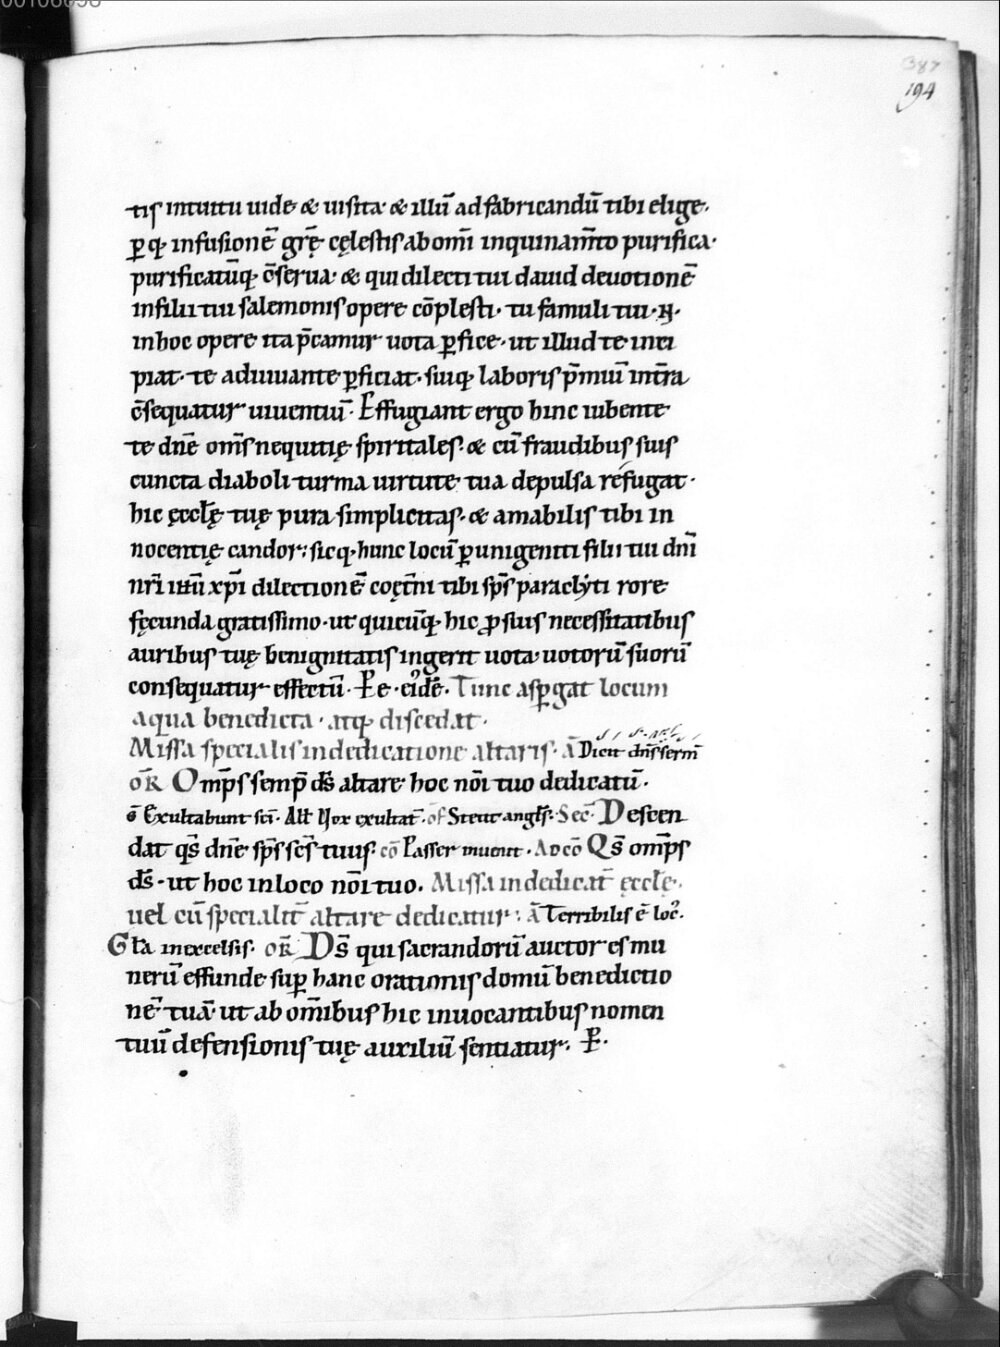 00106098
387
194
tis intuitu uide & uisita· & illū ad fabricandū tibi elige·
ꝑ q̨ infusionē grę̄ cęlestis ab om̄i inquinam̄to purifica·
purificatūq̨ c̄serua· & qui dilecti tui dauid deuotionē
in filii tui salemonis opere cōplesti· tu famuli tui ·N·
in hoc opere ita p̄camur uota ꝑfice· ut illud te inci
piat· te adiuuante ꝑficiat· suiq̨ laboris p̄miū in tr̄a
c̄sequatur uiuentiū· Effugiant ergo hinc iubente
te dn̄e om̄s nequitię spiritales· & cū fraudibus suis
cuncta diaboli turma uirtute tua depulsa refugat·
hic ęccłę tuę pura simplicitas· & amabilis tibi in
nocentię candor: sicq̨ hunc locū ꝑ unigeniti filii tui dn̄i
nr̄i ihū xp̄i dilectionē coęt̄ni tibi sp̄s paraclyti rore
fęcunda gratissimo· ut quicūq̨ hic ꝓ suis necessitatibus
auribus tuę benignitatis ingerit uota· uotorū suorū
consequatur effectū· P̱e· ei'dē· Tunc asꝑgat locum
aqua benedicta· atq̨ discedat·
Missa specialis in dedicatione altaris· ā Dicit dn̄s serm̄
oR̄ Omp̄s semp̄ ds̄ altare hoc nōi tuo dedicatū·
ē Exultabunt sc̄i· Alł Nox exultat̄· of Stetit angłs· Sec̄· Descen
dat qs̄ dn̄e sp̄s sc̄s tuus· cō Passer inuenit· Ad cō Qs̄ omp̄s
ds̄· ut hoc in loco nōi tuo. Missa in dedicat̄ ęccłę·
uel cū specialit̄ altare dedicatur: ā Terribilis ē loc'·
Gła in excelsis· oR̄ Ds̄ qui sacrandorū auctor es mu
nerū effunde suꝑ hanc orationis domū benedictio
nē tuā· ut ab om̄ibus hic inuocantibus nomen
tuū defensionis tuę auxiliū sentiatur· P̱·